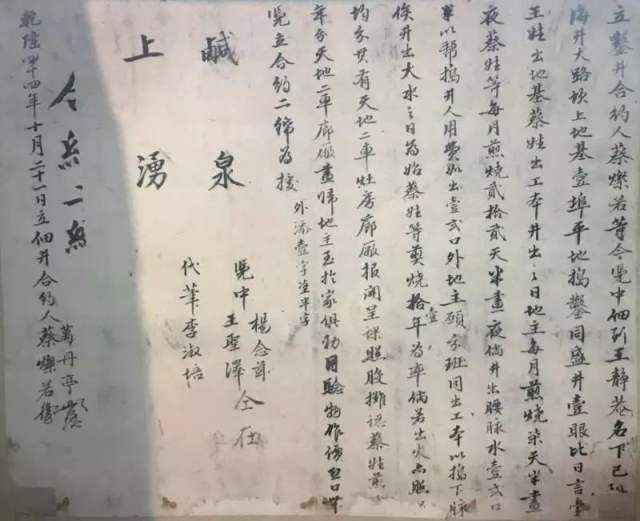 立鑿井合約人蔡燦若等今凭中佃到王静菴名下已填
海井大路坎上地基壹埠平地搗鑿同盛井壹眼比日言定
王姓出地基蔡姓出工本井出之日地主每月煎燒柒天半晝
夜蔡姓等每月煎燒貳拾貳天半晝夜倘井出腰脉水壹弍口
以帮搗井人用費如出壹弍口外地主願分班同出工本以搗下脉
俟井出大水之日為始蔡姓等煎燒拾壹年為率倘若出火亦照
均分其有天地二車灶房廊厰報開呈課照股攤認蔡姓煎
年分天地二車廊厰盡歸地主至於家俱物用驗物作價恐口
凭立合約二紙為據
外添壹字准平字
鹹泉
上湧
凭中
楊念
王聖澤
仝在
代筆李淑培
乾隆四十四年十月二十一日立佃井合約人蔡燦若等
萬丹亭